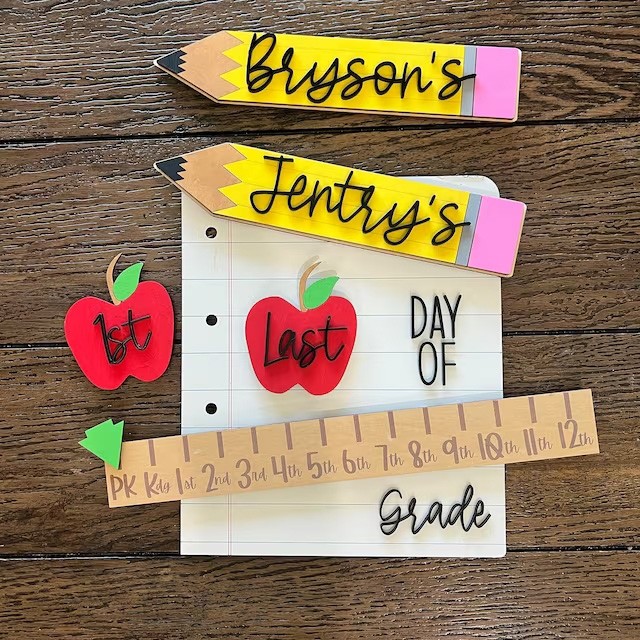 Bryson's
Jentry's
1st
Last
DAY
OF
PK Kdg 1st 2nd 3rd 4th 5th 6th 7th 8th 9th 10th 11th 12th
Grade